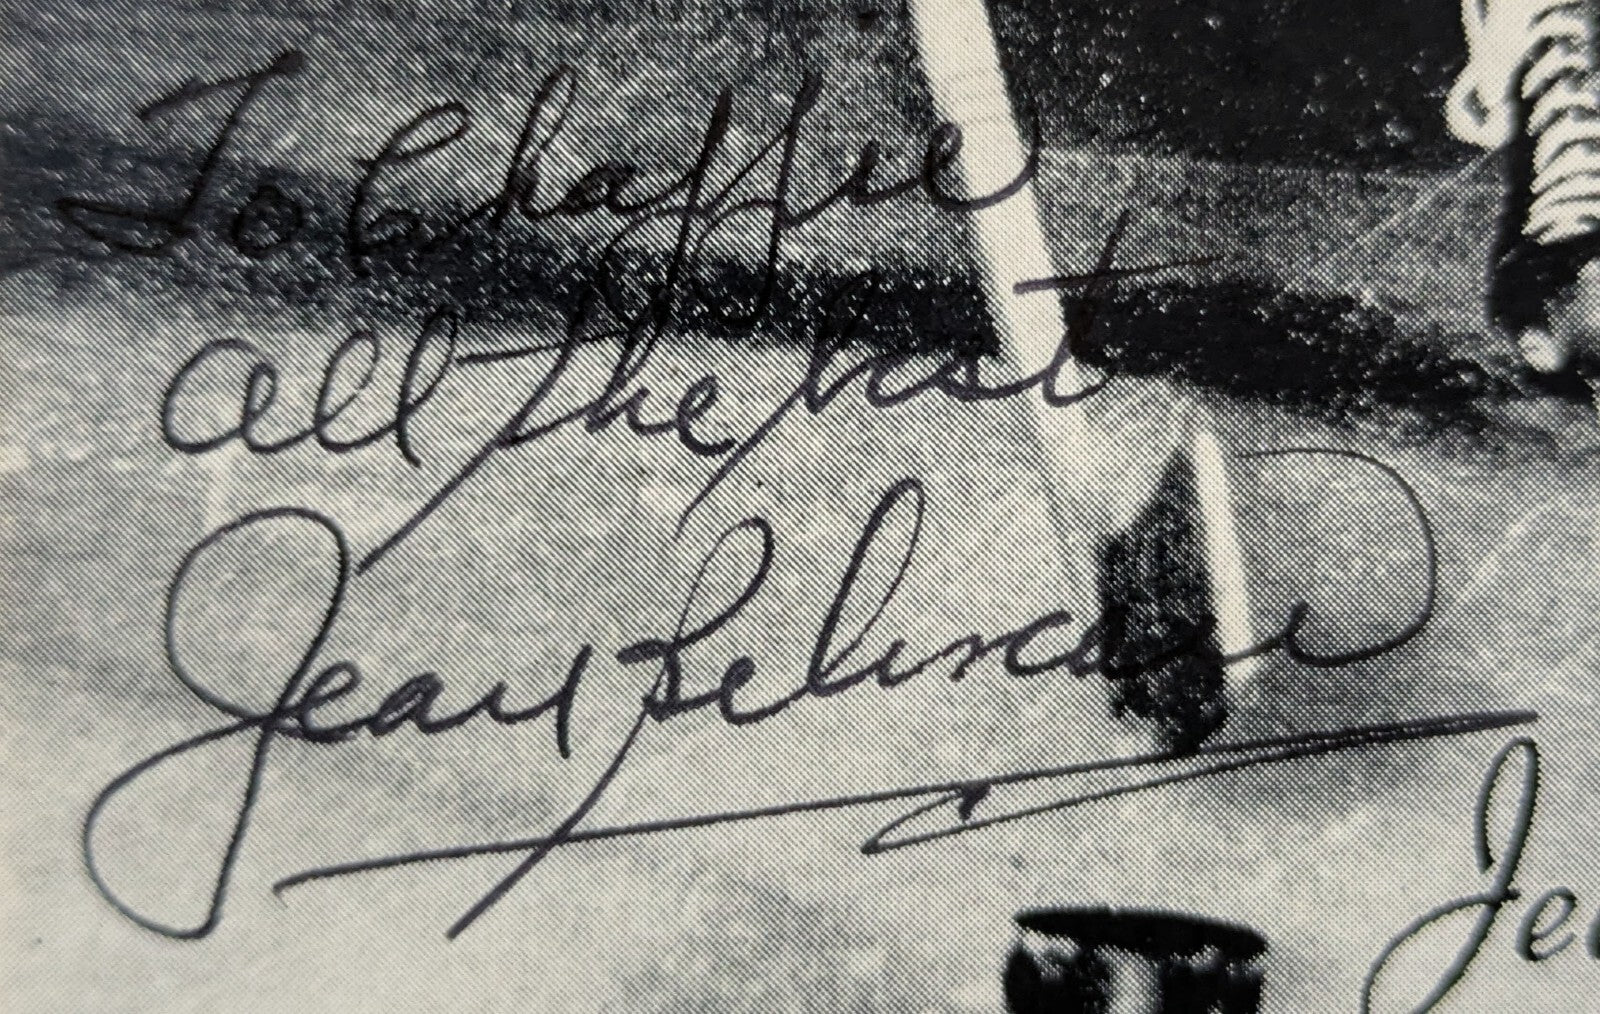 To Chaffie
all the best
Jean Beliveau
Je